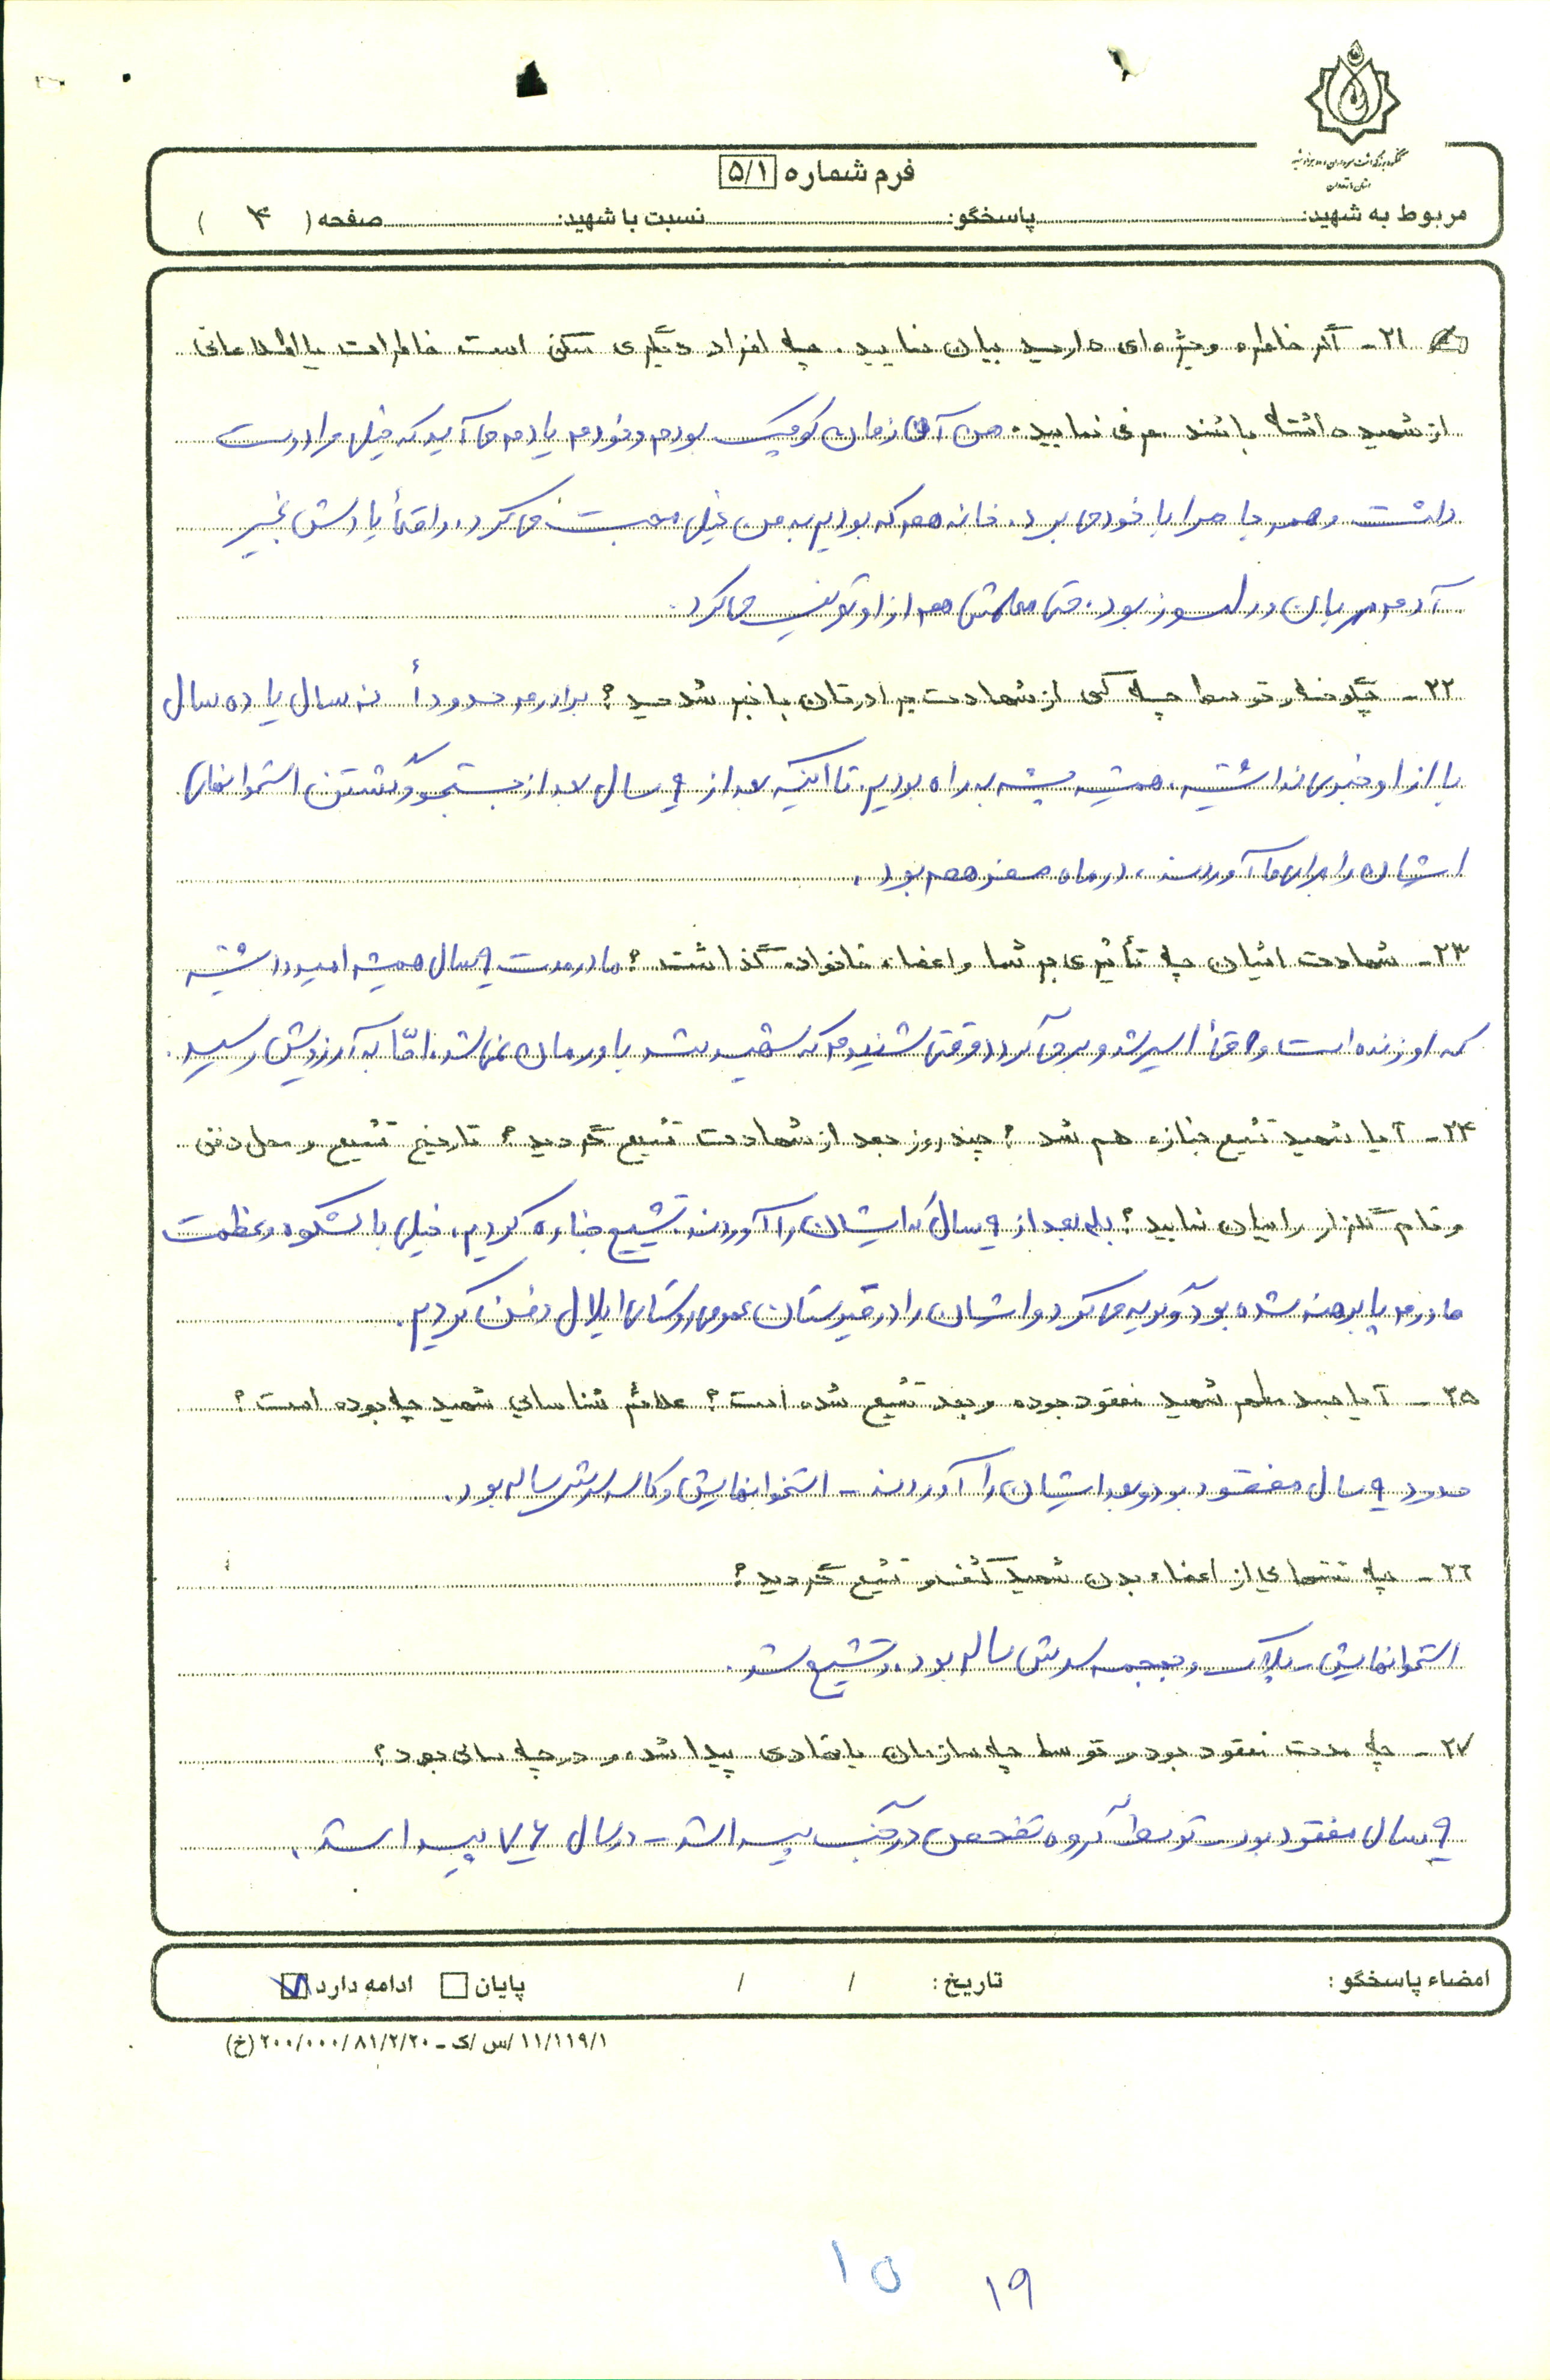 کنگره بزرگداشت سرداران و ده هزار شهید
استان مازندران
فرم شماره ۵/۱
مربوط به شهید: پاسخگو: نسبت با شهید: صفحه ( ۴ )
۲۱- اگر خاطره ویژه‌ای دارید بیان نمایید. چه افراد دیگری ممکن است خاطرات یا اطلاعاتی
از شهید داشته باشند معرفی نمایید. من آن زمان کوچک بودم و خودم یادم می‌آید که خیلی مرا دوست
داشت و همه جا مرا با خود می‌برد. خانه هم که بودیم به من خیلی محبت می‌کرد. واقعاً یادش بخیر
آدم مهربان و دلسوز بود. حتی معلمش هم از او تعریف می‌کرد.
۲۲- چگونه و توسط چه کسی از شهادت برادرتان باخبر شدید؟ برادرم حدوداً نه سال یا ده سال
ما از او خبری نداشتیم، همیشه چشم به راه بودیم. تا اینکه بعد از ۹ سال بعد از جستجو و گشتن استخوانهای
ایشان را برای ما آوردند، در ماه صفر هم بود.
۲۳- شهادت ایشان چه تأثیری بر شما و اعضاء خانواده گذاشت؟ ما در مدت ۹ سال همیشه امید داشتیم
که او زنده است واقعاً اسیر شد و برمی‌گردد وقتی شنیدم که شهید شد باورمان نمی‌شد. امّا به آرزویش رسید.
۲۴- آیا شهید تشیع جنازه هم شد؟ چند روز بعد از شهادت تشیع گردید؟ تاریخ تشیع و محل دفن
و نام گلزار را بیان نمایید؟ بله بعد از ۹ سال که ایشان را آوردند تشییع جنازه کردیم. خیلی با شکوه و عظمت
مادرم پا برهنه شده بود و گریه می‌کرد و ایشان را در قبرستان عمومی روستای ایلال دفن کردیم.
۲۵- آیا جسد مطهر شهید مفقود بوده و بعد تشیع شده است؟ علائم شناسایی شهید چه بوده است؟
حدود ۹ سال مفقود بود و بعد ایشان را آوردند - استخوانهایش و کاسه سرش سالم بود.
۲۶- چه قسمتهایی از اعضاء بدن شهید کشف و تشیع گردید؟
استخوانهایش - پلاک و جمجمه سرش سالم بود. و تشییع شد.
۲۷- چه مدت مفقود بود و توسط چه سازمان یا نهادی پیدا شد و در چه سالی بود؟
۹ سال مفقود بود - توسط گروه تفحص در جنگ پیدا شد - در سال ۷۶ پیدا شد.
امضاء پاسخگو: تاریخ: / / پایان ادامه دارد
۱۱/۱۱۹/۱/س/ک - ۲۰۰/۰۰۰/۸۱/۲/۲۰ (خ)
۱۵ ۱۹